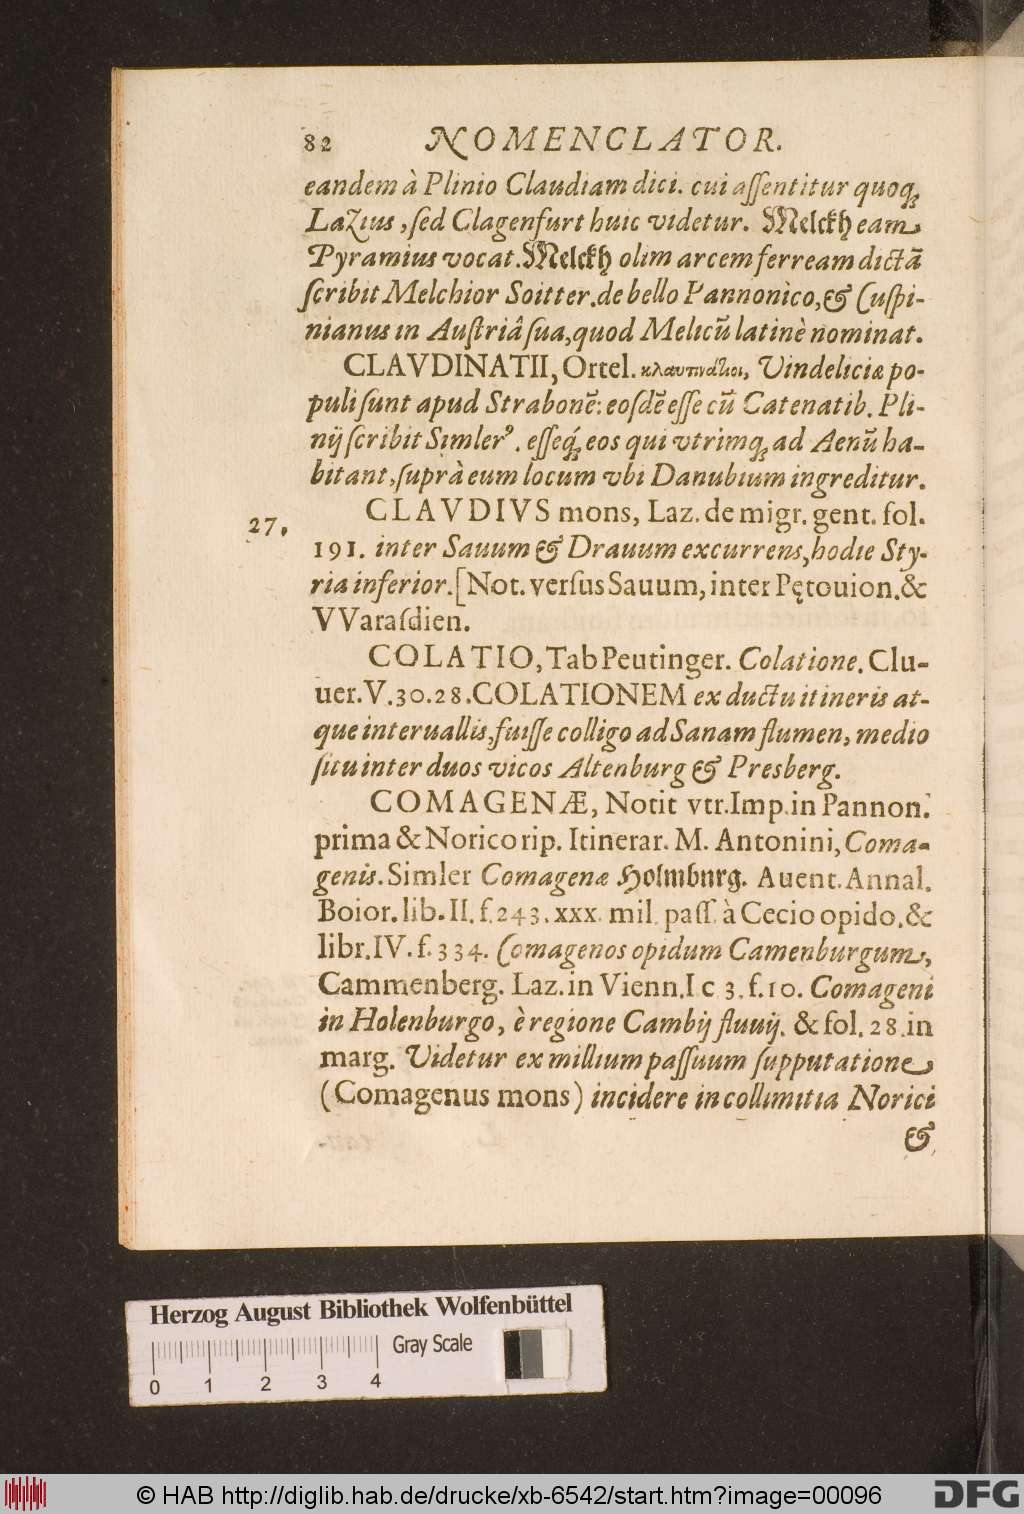 82 NOMENCLATOR.
eandem à Plinio Claudiam dici. cui aſſentitur quoqꝫ
Lazius, ſed Clagenfurt huic videtur. Melckh eam
Pyramius vocat. Melckh olim arcem ferream dictã
ſcribit Melchior Soitter. de bello Pannonico, & Cuſpi-
nianus in Auſtriâ ſua, quod Melicũ latinè nominat.
CLAVDINATII, Ortel. κλαυτινάτιοι, Vindeliciæ po-
puli ſunt apud Strabonẽ: eoſdẽ eſſe cũ Catenatib. Pli-
nij ſcribit Simlerꝰ. eſſeqꝫ́ eos qui vtrimqꝫ ad Aenũ ha-
bitant, ſuprà eum locum vbi Danubium ingreditur.
CLAVDIVS mons, Laz. de migr. gent. fol.
27.
191. inter Sauum & Drauum excurrens, hodie Sty-
ria inferior. [Not. verſus Sauum, inter Pętouion. &
VVaraſdien.
COLATIO, Tab Peutinger. Colatione. Clu-
uer. V. 30. 28. COLATIONEM ex ductu itineris at-
que interuallis, fuiſſe colligo ad Sanam flumen, medio
ſitu inter duos vicos Altenburg & Presberg.
COMAGENÆ, Notit vtr. Imp. in Pannon.
prima & Norico rip. Itinerar. M. Antonini, Coma-
genis. Simler Comagenæ Holmburg. Auent. Annal.
Boior. lib. II. f. 243. xxx. mil. paſſ. à Cecio opido. &
libr. IV. f. 334. Comagenos opidum Camenburgum,
Cammenberg. Laz. in Vienn. I c 3. f. 10. Comageni
in Holenburgo, è regione Cambij fluuij. & fol. 28. in
marg. Videtur ex millium paſſuum ſupputatione
(Comagenus mons) incidere in collimitia Norici
&
Herzog August Bibliothek Wolfenbüttel
Gray Scale
0 1 2 3 4
© HAB http://diglib.hab.de/drucke/xb-6542/start.htm?image=00096
DFG